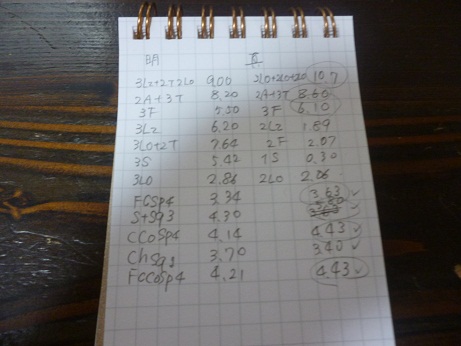 明 真
3Lz+2T2Lo 9.00 2Lo+2Lo+2Lo 10.7
2A+3T 8.20 2A+3T 8.60
3F 5.50 3F 6.10
3Lz 6.20 2Lz 1.89
3Lo+2T 7.64 2F 2.07
3S 5.42 1S 0.30
3Lo 2.86 2Lo 2.06
FCSp4 3.34 3.63 ✓
StSq3 4.30
CCoSp4 4.14 4.43 ✓
ChSq1 3.70 3.40 ✓
FCCoSp4 4.21 4.43 ✓